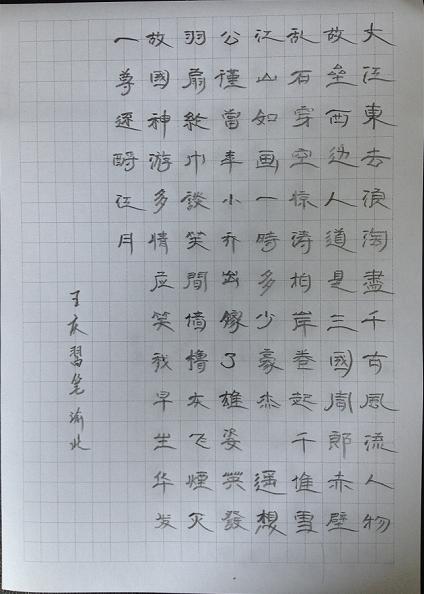 大江東去浪淘盡千古風流人物
故壘西边人道是三國周郎赤壁
乱石穿空惊涛拍岸卷起千堆雪
江山如画一時多少豪杰 遥想
公瑾當年小乔出嫁了雄姿英發
羽扇纶巾談笑間墻櫓灰飞煙灭
故國神游多情应笑我早生华发
一尊还酹江月
王習笔渝北